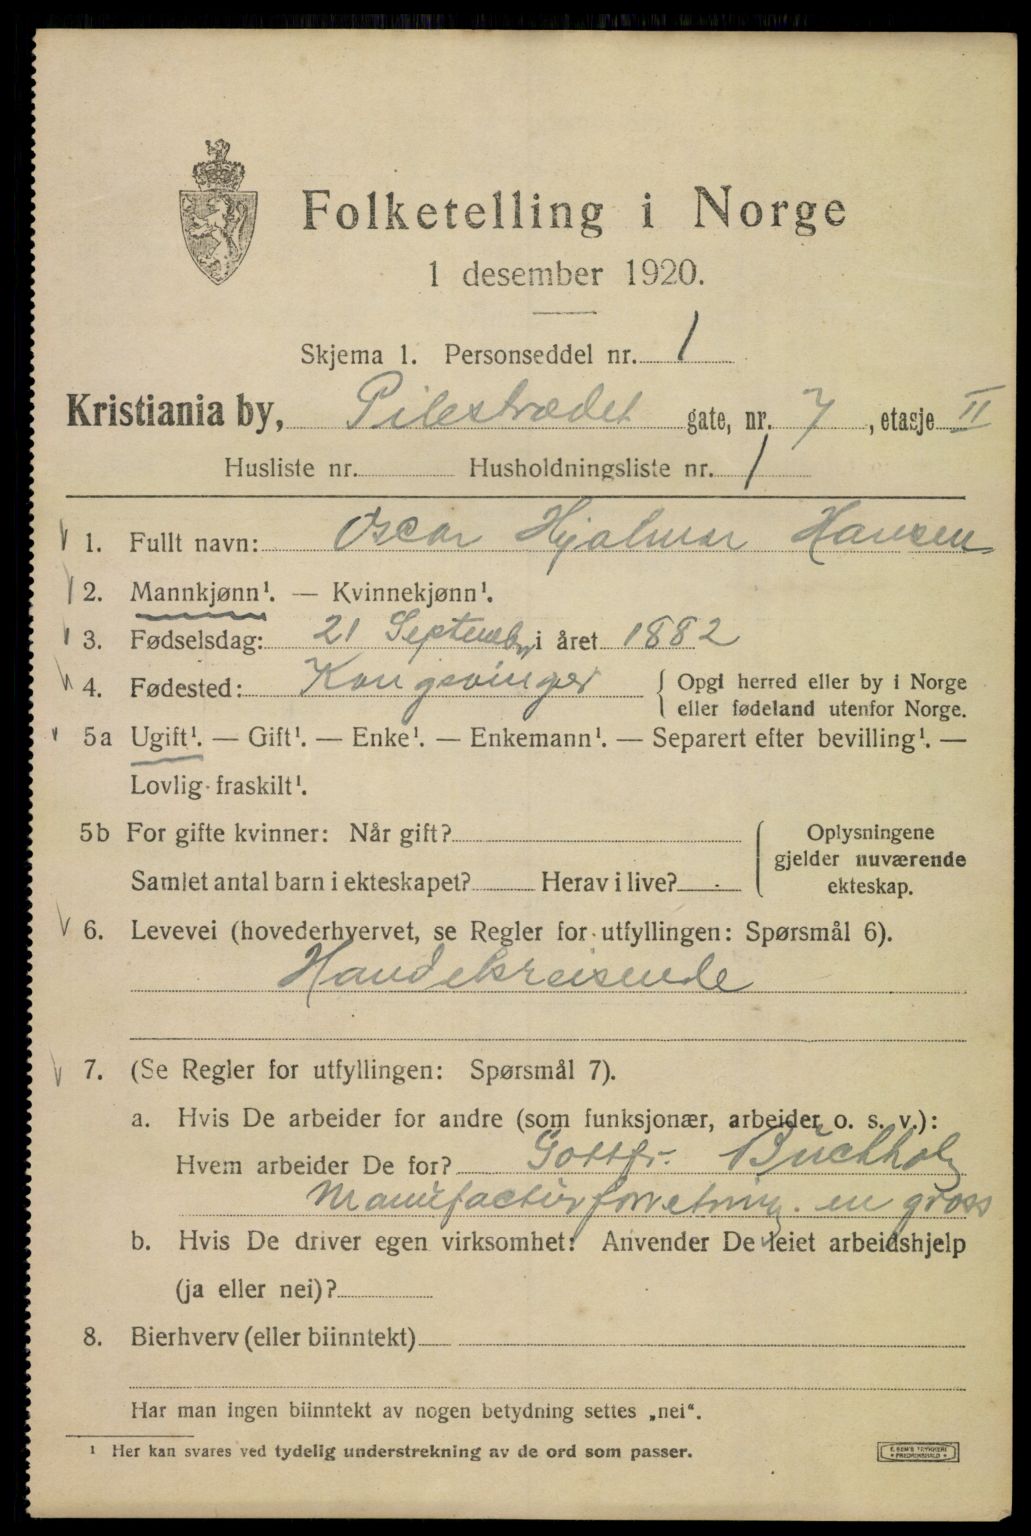 Folketelling i Norge
1 desember 1920.
Skjema 1. Personseddel nr. 1
Kristiania by, Pilestrædet gate, nr. 7, etasje II
Husliste nr. Husholdningsliste nr. 1
1. Fullt navn: Oscar Hjalmar Hansen
2. Mannkjønn¹. — Kvinnekjønn¹.
3. Fødselsdag: 21 Septembr i året 1882
4. Fødested: Kongsvinger { Opgi herred eller by i Norge
eller fødeland utenfor Norge.
5a Ugift¹. — Gift¹. — Enke¹. — Enkemann¹. — Separert efter bevilling¹. —
Lovlig fraskilt¹.
5b For gifte kvinner: Når gift? { Oplysningene
gjelder nuværende
Samlet antal barn i ekteskapet? Herav i live? ekteskap.
6. Levevei (hovederhvervet, se Regler for utfyllingen: Spørsmål 6).
Handelsreisende
7. (Se Regler for utfyllingen: Spørsmål 7).
a. Hvis De arbeider for andre (som funksjonær, arbeider o. s. v.):
Hvem arbeider De for? Gottfr. Buchholz
Manufacturforretning. en gross
b. Hvis De driver egen virksomhet: Anvender De leiet arbeidshjelp
(ja eller nei)?
8. Bierhverv (eller biinntekt)
Har man ingen biinntekt av nogen betydning settes „nei“.
¹ Her kan svares ved tydelig understrekning av de ord som passer.
E. SEM'S TRYKKERI
FREDRIKSHALD